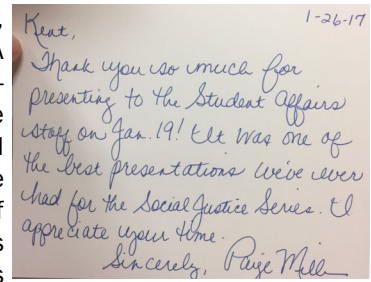 1-26-17
Kent,
Thank you so much for
presenting to the Student Affairs
staff on Jan. 19! It was one of
the best presentations we've ever
had for the Social Justice Series. I
appreciate your time.
Sincerely, Paige Miller